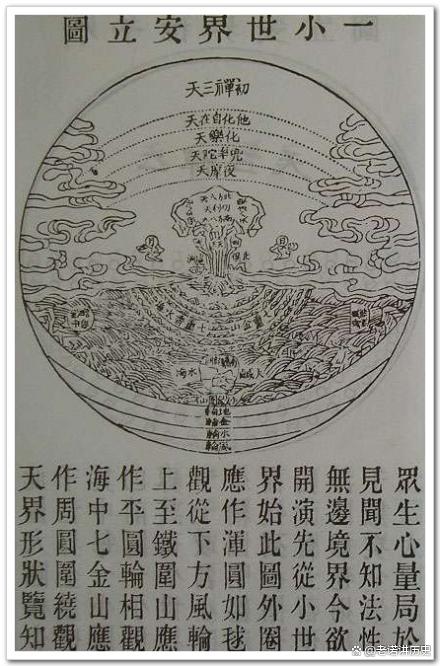 一小世界安立圖
初禪三天
他化自在天
化樂天
兜率陀天
夜摩天
日
月
大鹹水海
金輪
水輪
風輪
眾生心量局於
見聞不知法性
無邊境界今欲
開演先從小世
界始此圖外圈
應作渾圓如球
觀從下方風輪
上至鐵圍山應
作平圓輪相觀
海中七金山應
作周圓圍繞觀
天界形狀覽知
@老诺讲历史